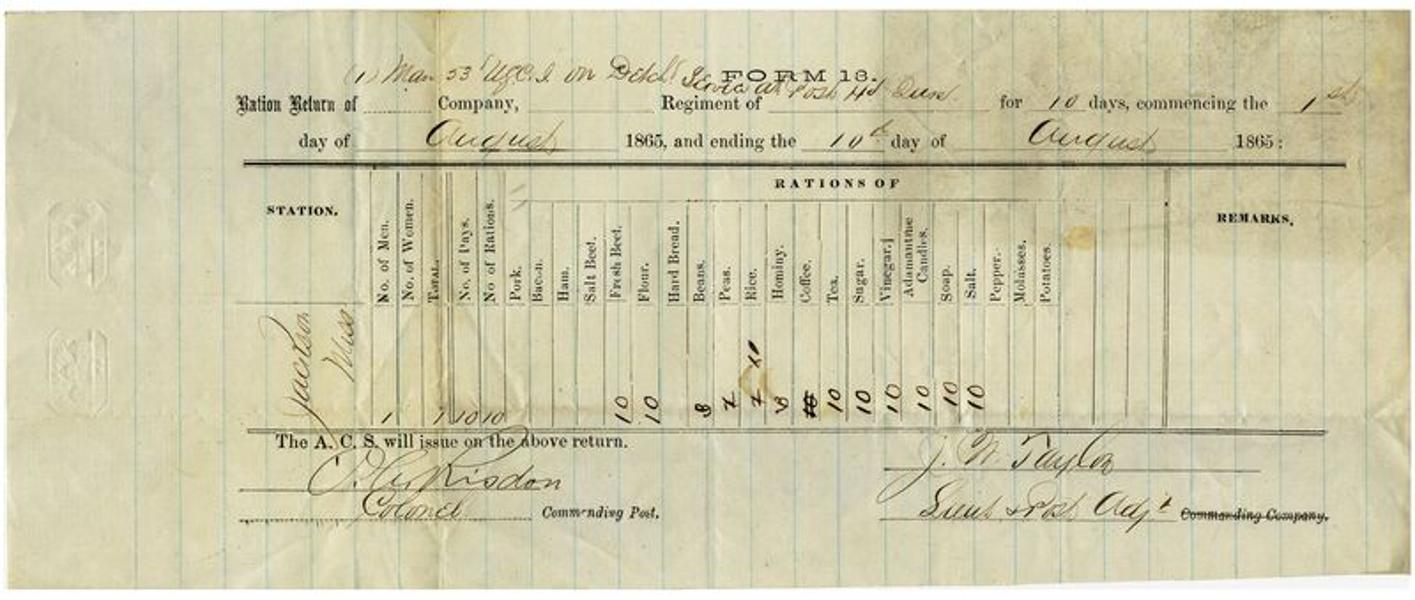 FORM 13.
(1) Man 53 U.S.C.I. on Detch Service at Post Hd Qurs
Ration Return of Company, Regiment of for 10 days, commencing the 1st
day of August 1865, and ending the 10th day of August 1865:
RATIONS OF
STATION. REMARKS.
No. of Men. No. of Women. Total. No. of Days. No of Rations. Pork. Bacon. Ham. Salt Beef. Fresh Beef. Flour. Hard Bread. Beans. Peas. Rice. Hominy. Coffee. Tea. Sugar. Vinegar. Adamantine Candles. Soap. Salt. Pepper. Molasses. Potatoes.
Jackson Miss
1 1 10 10 10 10 10 10 10 10 10 10 10
The A. C. S. will issue on the above return.
Risdon J. W. Taylor
Colonel Commanding Post. Lieut & Post Adjt Commanding Company.